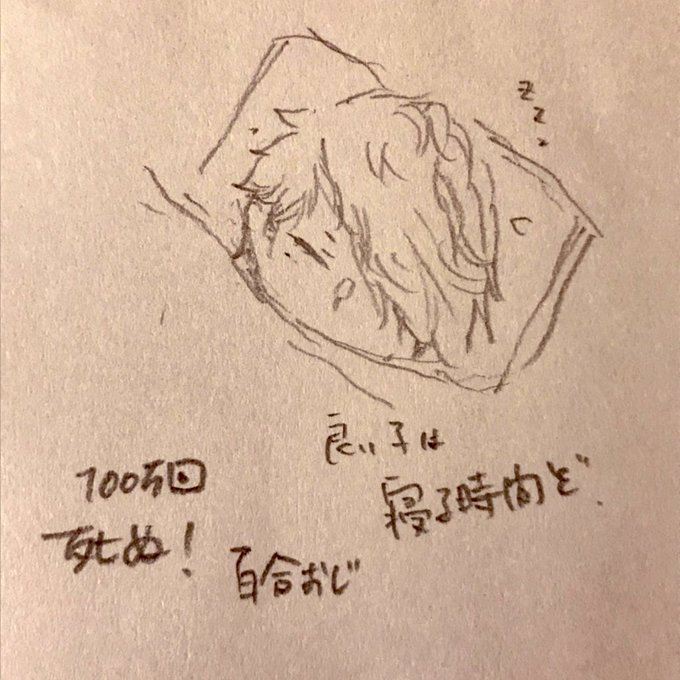 zzz
良い子は
寝る時間ぞ.
100万回
死ぬ!
百合おじ